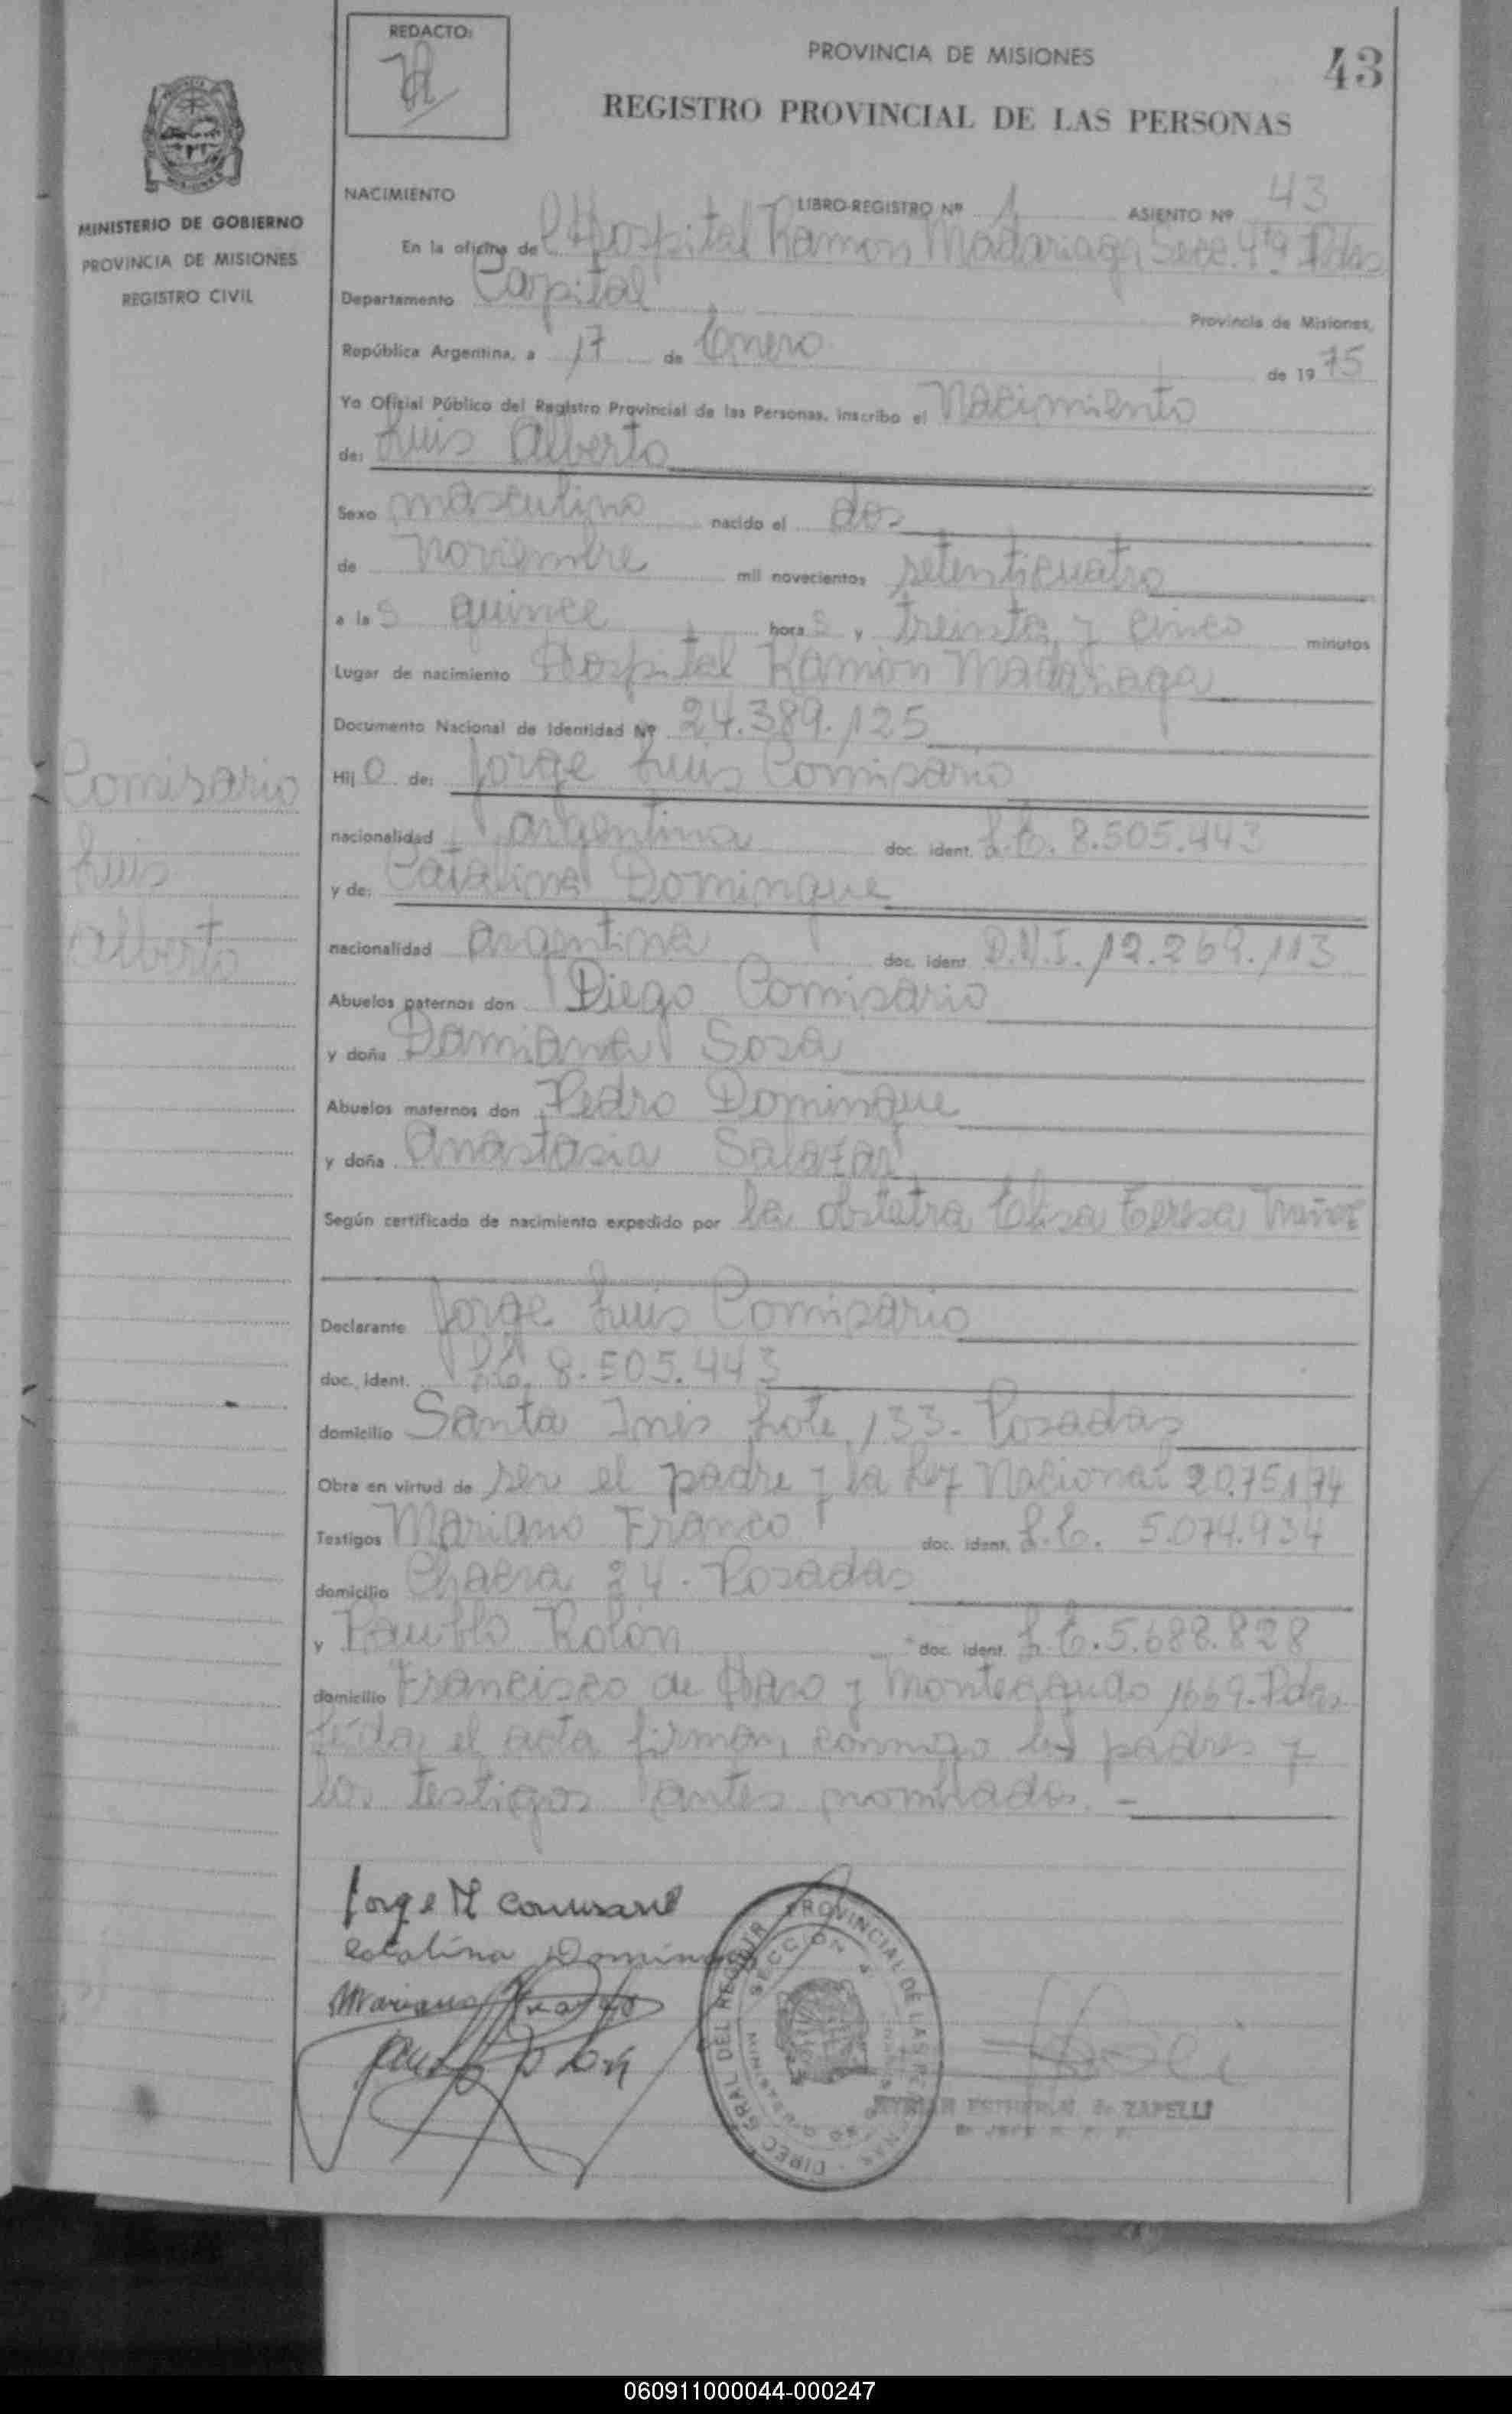 REDACTO:
PROVINCIA DE MISIONES
43
REGISTRO PROVINCIAL DE LAS PERSONAS
MINISTERIO DE GOBIERNO
PROVINCIA DE MISIONES
REGISTRO CIVIL
NACIMIENTO LIBRO-REGISTRO Nº 1 ASIENTO Nº 43
En la oficina de Hospital Ramon Madariaga Secc. 4ta Pdas
Departamento Capital Provincia de Misiones,
República Argentina, a 17 de Enero de 1975
Yo Oficial Público del Registro Provincial de las Personas, inscribo el Nacimiento
de: Luis Alberto
Sexo masculino nacido el dos
de noviembre mil novecientos setenticuatro
a las quince horas y treinta y cinco minutos
Lugar de nacimiento Hospital Ramon Madariaga
Documento Nacional de Identidad Nº 24.389.125
Comisario
Luis
Alberto
Hijo de: Jorge Luis Comisario
nacionalidad argentina doc. ident. L.E. 8.505.443
y de: Catalina Domingue
nacionalidad argentina doc. ident. D.N.I. 12.269.113
Abuelos paternos don Diego Comisario
y doña Damiana Sosa
Abuelos maternos don Pedro Domingue
y doña Anastasia Salazar
Según certificado de nacimiento expedido por la obstetra Elisa Teresa Muñoz
Declarante Jorge Luis Comisario
doc. ident. L.E. 8.505.443
domicilio Santa Inés Lote 133- Posadas
Obra en virtud de ser el padre y la Ley Nacional 20.751/74
Testigos Mariano Franco doc. ident. L.E. 5.074.934
domicilio Chacra 24 - Posadas
y Rolón doc. ident. L.E. 5.688.828
domicilio Francisco de Haro y Monteagudo 1669- Pdas
Leída el acta firman conmigo los padres y
los testigos antes nombrados. -
Jorge L Comisario
Catalina Domingue
Mariano Franco
DIREC. GRAL DEL REGISTR. PROVINCIAL DE LAS PERSONAS
SECCION 4
de ZAPELLI
060911000044-000247